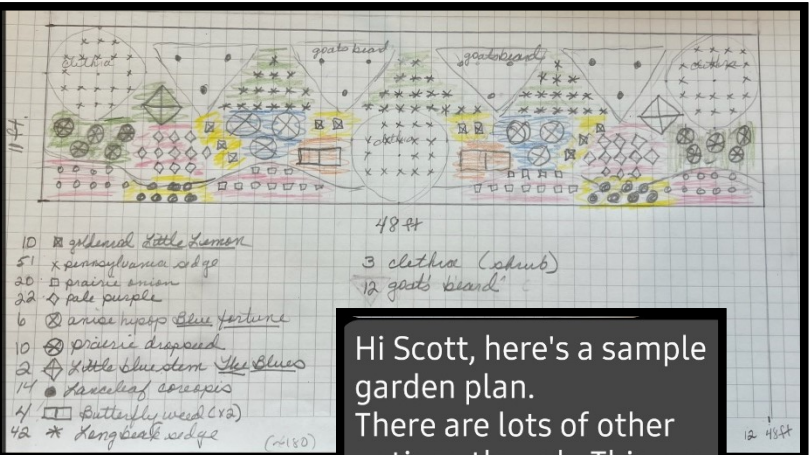 clethra
goatsbeard
goatsbeard
clethra
clethra
11 ft.
48 ft
10 goldenrod Little Lemon
51 x pennsylvania sedge
20 prairie onion
22 pale purple
6 anise hyssop Blue fortune
10 prairie dropseed
2 Little bluestem The Blues
14 Lanceleaf coreopsis
4 Butterfly weed (x2)
42 Longbeak sedge
(~180)
3 clethra (shrub)
12 goats beard
Hi Scott, here's a sample
garden plan.
There are lots of other
12 48ft